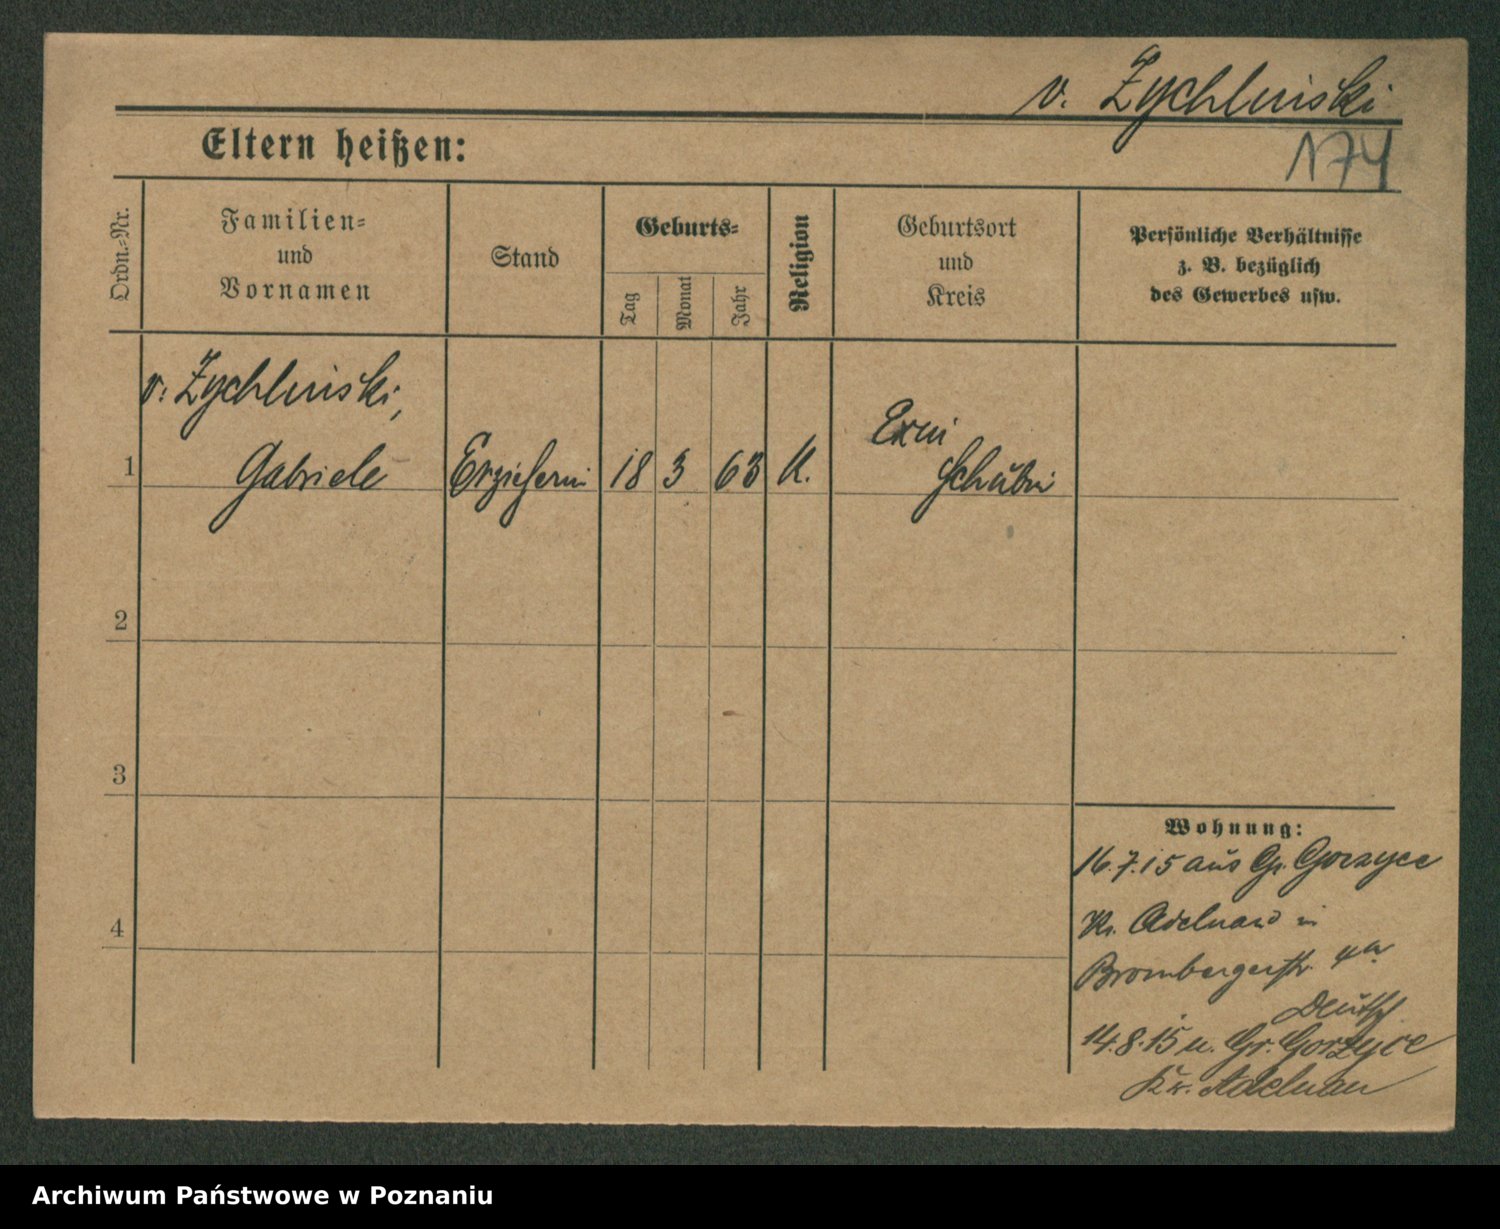 v. Zychlinski
174
Eltern heißen:
Ordn.-Nr.
Familien-
und
Vornamen
Stand
Geburts-
Tag
Monat
Jahr
Religion
Geburtsort
und
Kreis
Persönliche Verhältnisse
z. B. bezüglich
des Gewerbes usw.
v. Zychlinski,
1 Gabriele Erzieherin 18 3 63 K. Exin
Schubin
2
3
4
Wohnung:
16.7.15 aus Gr. Gorzyce
Kr. Adelnau in
Brombergerstr. 4a
Deutsch
14.8.15 n. Gr. Gorzyce
Kr. Adelnau
Archiwum Państwowe w Poznaniu